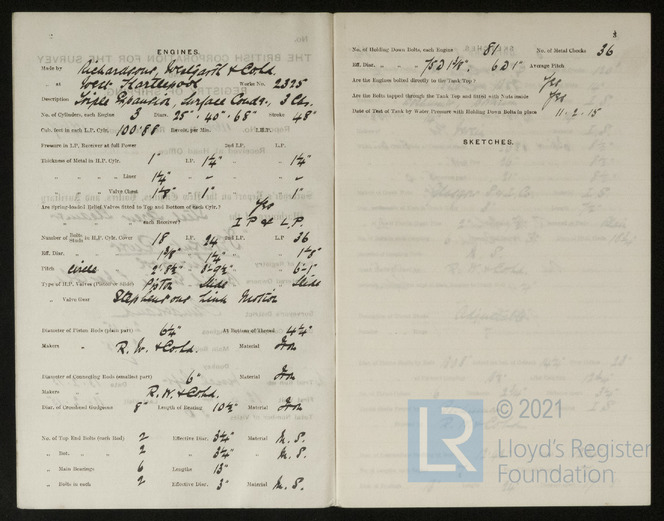 2
ENGINES.
Made by Richardsons, Westgarth & Co Ld.
„ at West Hartlepool Works No. 2325
Description Triple Expansion, Surface Condr., 3 Cly.
No. of Cylinders, each Engine 3 Diars. 25" . 40" . 68" Stroke 48"
Cub. feet in each L.P. Cylr. 100.88 Revols. per Min. I.H.P.
Pressure in I.P. Receiver at full Power 2nd I.P. L.P.
Thickness of Metal in H.P. Cylr. 1" I.P. 1¼" „ 1¼"
„ „ „ Liner 1¼" „ – „ –
„ „ „ Valve Chest 1⅛" „ 1" „ 1"
Are Spring-loaded Relief Valves fitted to Top and Bottom of each Cylr.? Yes
„ „ „ „ each Receiver? I P & L.P.
Number of Bolts Studs in H.P. Cylr. Cover 18 I.P. 24 2nd I.P. L.P. 36
Eff. Diar. 1⅛" „ 1¼" „ 1⅛"
Pitch circle 2'-8½" „ 3'-9½" „ 6'-1"
Type of H.P. Valves (Piston or Slide) Piston Slide Slide
„ Valve Gear Stephensons Link Motion
Diameter of Piston Rods (plain part) 6¼" At Bottom of Thread 4¼"
Makers „ R. W. & Co Ld. Material Iron
Diameter of Connecting Rods (smallest part) 6" Material Iron
Makers R. W. & Co Ld.
Diar. of Crosshead Gudgeons 8" Length of Bearing 10½" Material Iron
No. of Top End Bolts (each Rod) 2 Effective Diar. 3¼" Material M. S.
„ Bot. „ „ 2 „ 3¼" „ M. S.
„ Main Bearings 6 Lengths 13"
„ Bolts in each 2 Effective Diar. 3" Material M. S.
3
No. of Holding Down Bolts, each Engine 81 No. of Metal Chocks 36
Eff. Diar. „ „ „ 75 D 1⅛". 6 D 1" Average Pitch
Are the Engines bolted directly to the Tank Top? Yes
Are the Bolts tapped through the Tank Top and fitted with Nuts inside Yes
Date of Test of Tank by Water Pressure with Holding Down Bolts in place 11 . 2 . 15
SKETCHES.
© 2021
LR
Lloyd's Register
Foundation